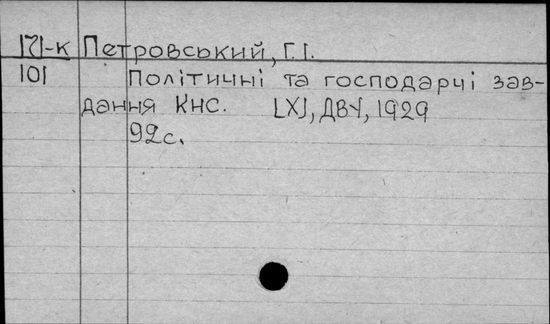 171-к Петровський, Г.І.
101 Політичні та господарчі зав-
дання Кнс. [Х], ДВУ, 1929
92с.